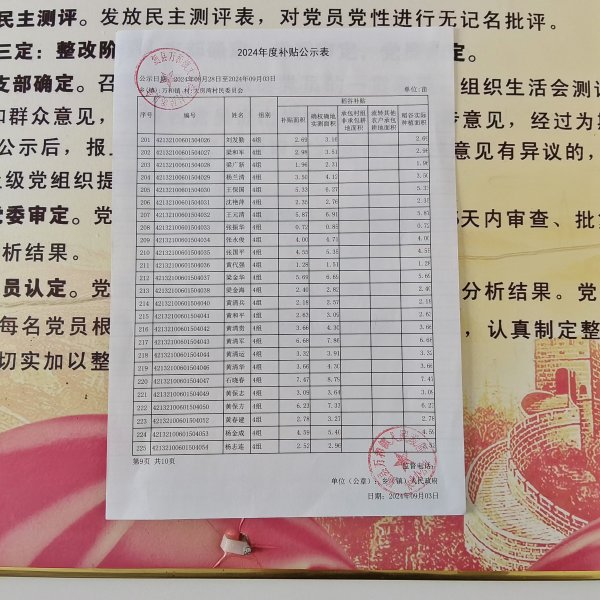 民主测评。发放民主测评表，对党员党性进行无记名批评。
三定：整改阶 定。
支部确定。召 组织生活会测评
和群众意见， 经过为期
公示后，报 意见有异议的，
级党组织提
党委审定。党 天内审查、批
析结果。
员认定。党 分析结果。党
每名党员根 ，认真制定整
切实加以整
2024年度补贴公示表
公示日期：2024年08月28日至2024年09月03日
乡(镇)：万和镇 村：大房湾村民委员会 单位：亩
序号 编号 姓名 组别 稻谷补贴
补贴面积 确权确地实测面积 承包村组非承包耕地面积 流转其他农户承包耕地面积 稻谷实际种植面积
201 42132100601504026 刘发勤 4组 2.69 3.16 2.69
202 42132100601504027 梁和军 4组 2.98 3.51 2.98
203 42132100601504028 梁广新 4组 1.96 2.31 1.96
204 42132100601504029 杨兰清 4组 3.50 4.12 3.50
205 42132100601504030 王保国 4组 5.33 6.27 5.33
206 42132100601504031 沈艳萍 4组 2.35 2.76 2.35
207 42132100601504032 王元清 4组 5.87 6.91 5.87
208 42132100601504033 张振华 4组 0.72 0.85 0.72
209 42132100601504034 张永俊 4组 4.00 4.71 4.00
210 42132100601504035 张国平 4组 4.55 5.35 4.55
211 42132100601504036 黄代强 4组 1.28 1.51 1.28
212 42132100601504037 梁金华 4组 5.69 6.69 5.69
213 42132100601504038 梁金海 4组 2.40 2.82 2.40
214 42132100601504040 黄清兵 4组 2.18 2.57 2.18
215 42132100601504041 黄和平 4组 2.63 3.09 2.63
216 42132100601504042 黄清贵 4组 3.66 4.30 3.66
217 42132100601504043 黄清军 4组 6.68 7.86 6.68
218 42132100601504044 黄清运 4组 3.32 3.91 3.32
219 42132100601504046 黄清华 4组 3.66 4.30 3.66
220 42132100601504047 石晓春 4组 7.47 8.79 7.47
221 42132100601504049 黄保志 4组 3.09 3.64 3.09
222 42132100601504050 黄保方 4组 6.23 7.33 6.23
223 42132100601504052 黄春建 4组 2.78 3.27 2.78
224 42132100601504053 杨金成 4组 4.59 5.40 4.59
225 42132100601504054 杨志连 4组 2.52 2.96 2.52
第9页 共10页
监督电话：
单位（公章）：乡（镇）人民政府
日期：2024年09月03日